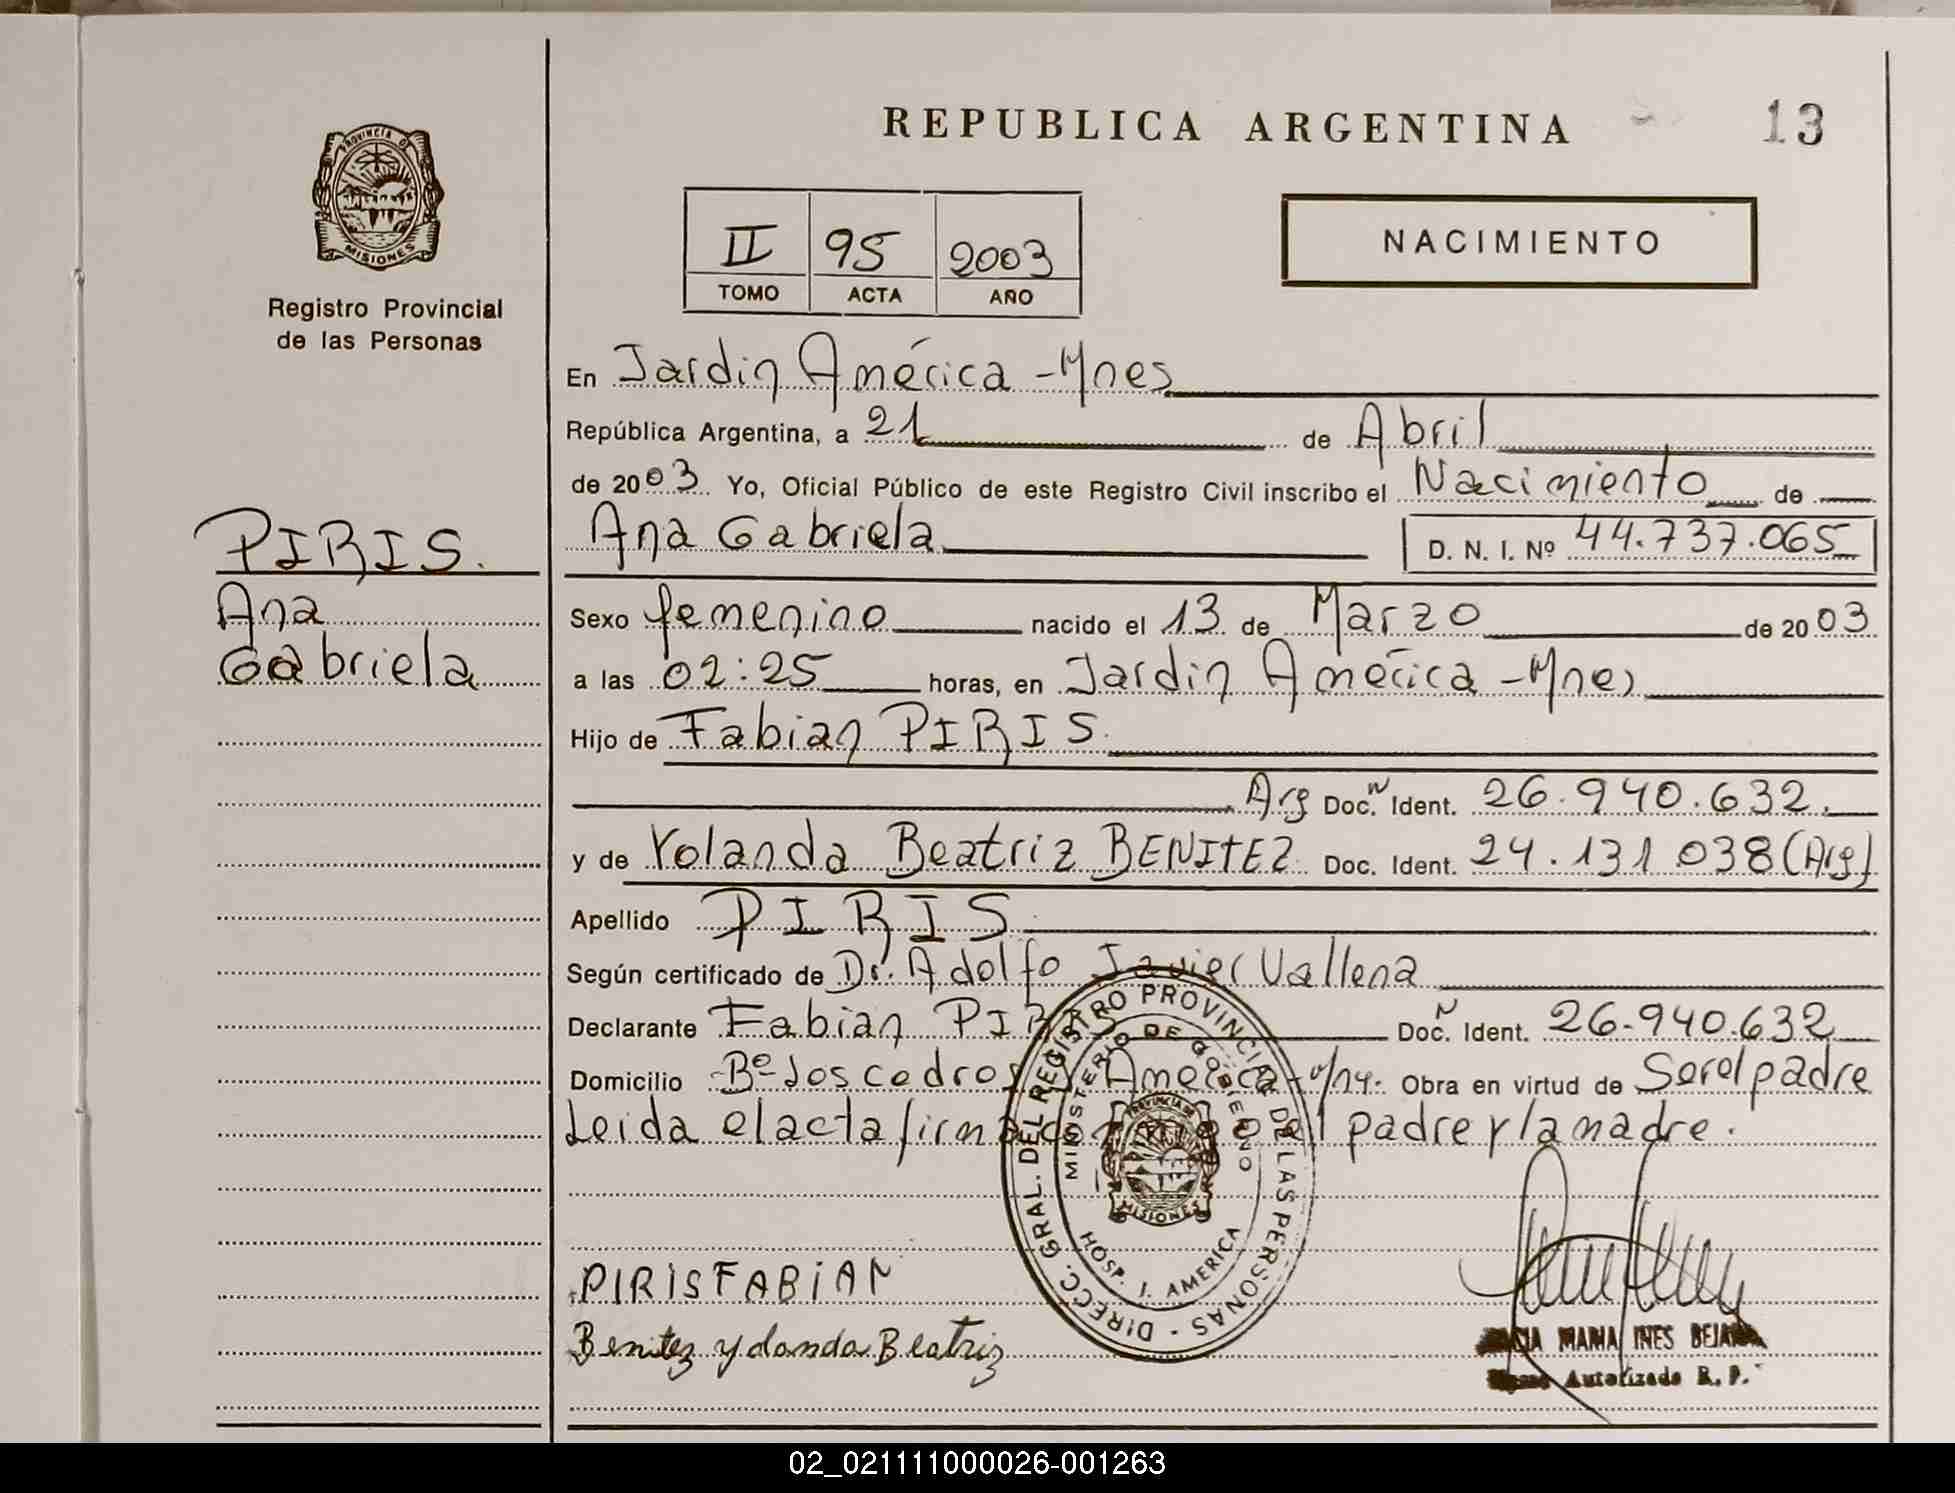 REPUBLICA ARGENTINA
13
PROVINCIA DE
MISIONES
Registro Provincial
de las Personas
II 95 2003
TOMO ACTA AÑO
NACIMIENTO
En Jardin América - Mnes
República Argentina, a 21 de Abril
de 2003 Yo, Oficial Público de este Registro Civil inscribo el Nacimiento de
Ana Gabriela D. N. I. Nº 44.737.065
PIRIS.
Ana
Gabriela
Sexo femenino nacido el 13 de Marzo de 2003
a las 02:25 horas, en Jardin América - Mnes
Hijo de Fabian PIRIS.
Arg Doc. N Ident. 26.940.632.
y de Yolanda Beatriz BENITEZ Doc. Ident. 24.131.038 (Arg)
Apellido PIRIS.
Según certificado de Dr. Adolfo Javier Vallena
Declarante Fabian PIRIS Doc. N Ident. 26.940.632
Domicilio Bº Los cedros J. América - Obra en virtud de Ser el padre
Leida el acta firman el padre y la madre.
DIRECC. GRAL. DEL REGISTRO PROVINCIAL DE LAS PERSONAS -
MINISTERIO DE GOBIERNO
HOSP. J. AMERICA
PROVINCIA DE
MISIONES
PIRIS FABiAN
Benitez yolanda Beatriz
MARIA INES
Autorizado R. P.
02_021111000026-001263